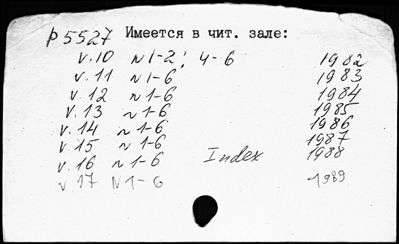 p 5527 Имеется в чит. зале:
v. 10 N 1-2; 4-6 1982
v. 11 N 1-6 1983
v. 12 N 1-6 1984
v. 13 N 1-6 1985
v. 14 N 1-6 1986
v. 15 N 1-6 1987
v. 16 N 1-6 Index 1988
v. 17 N 1-6 1989